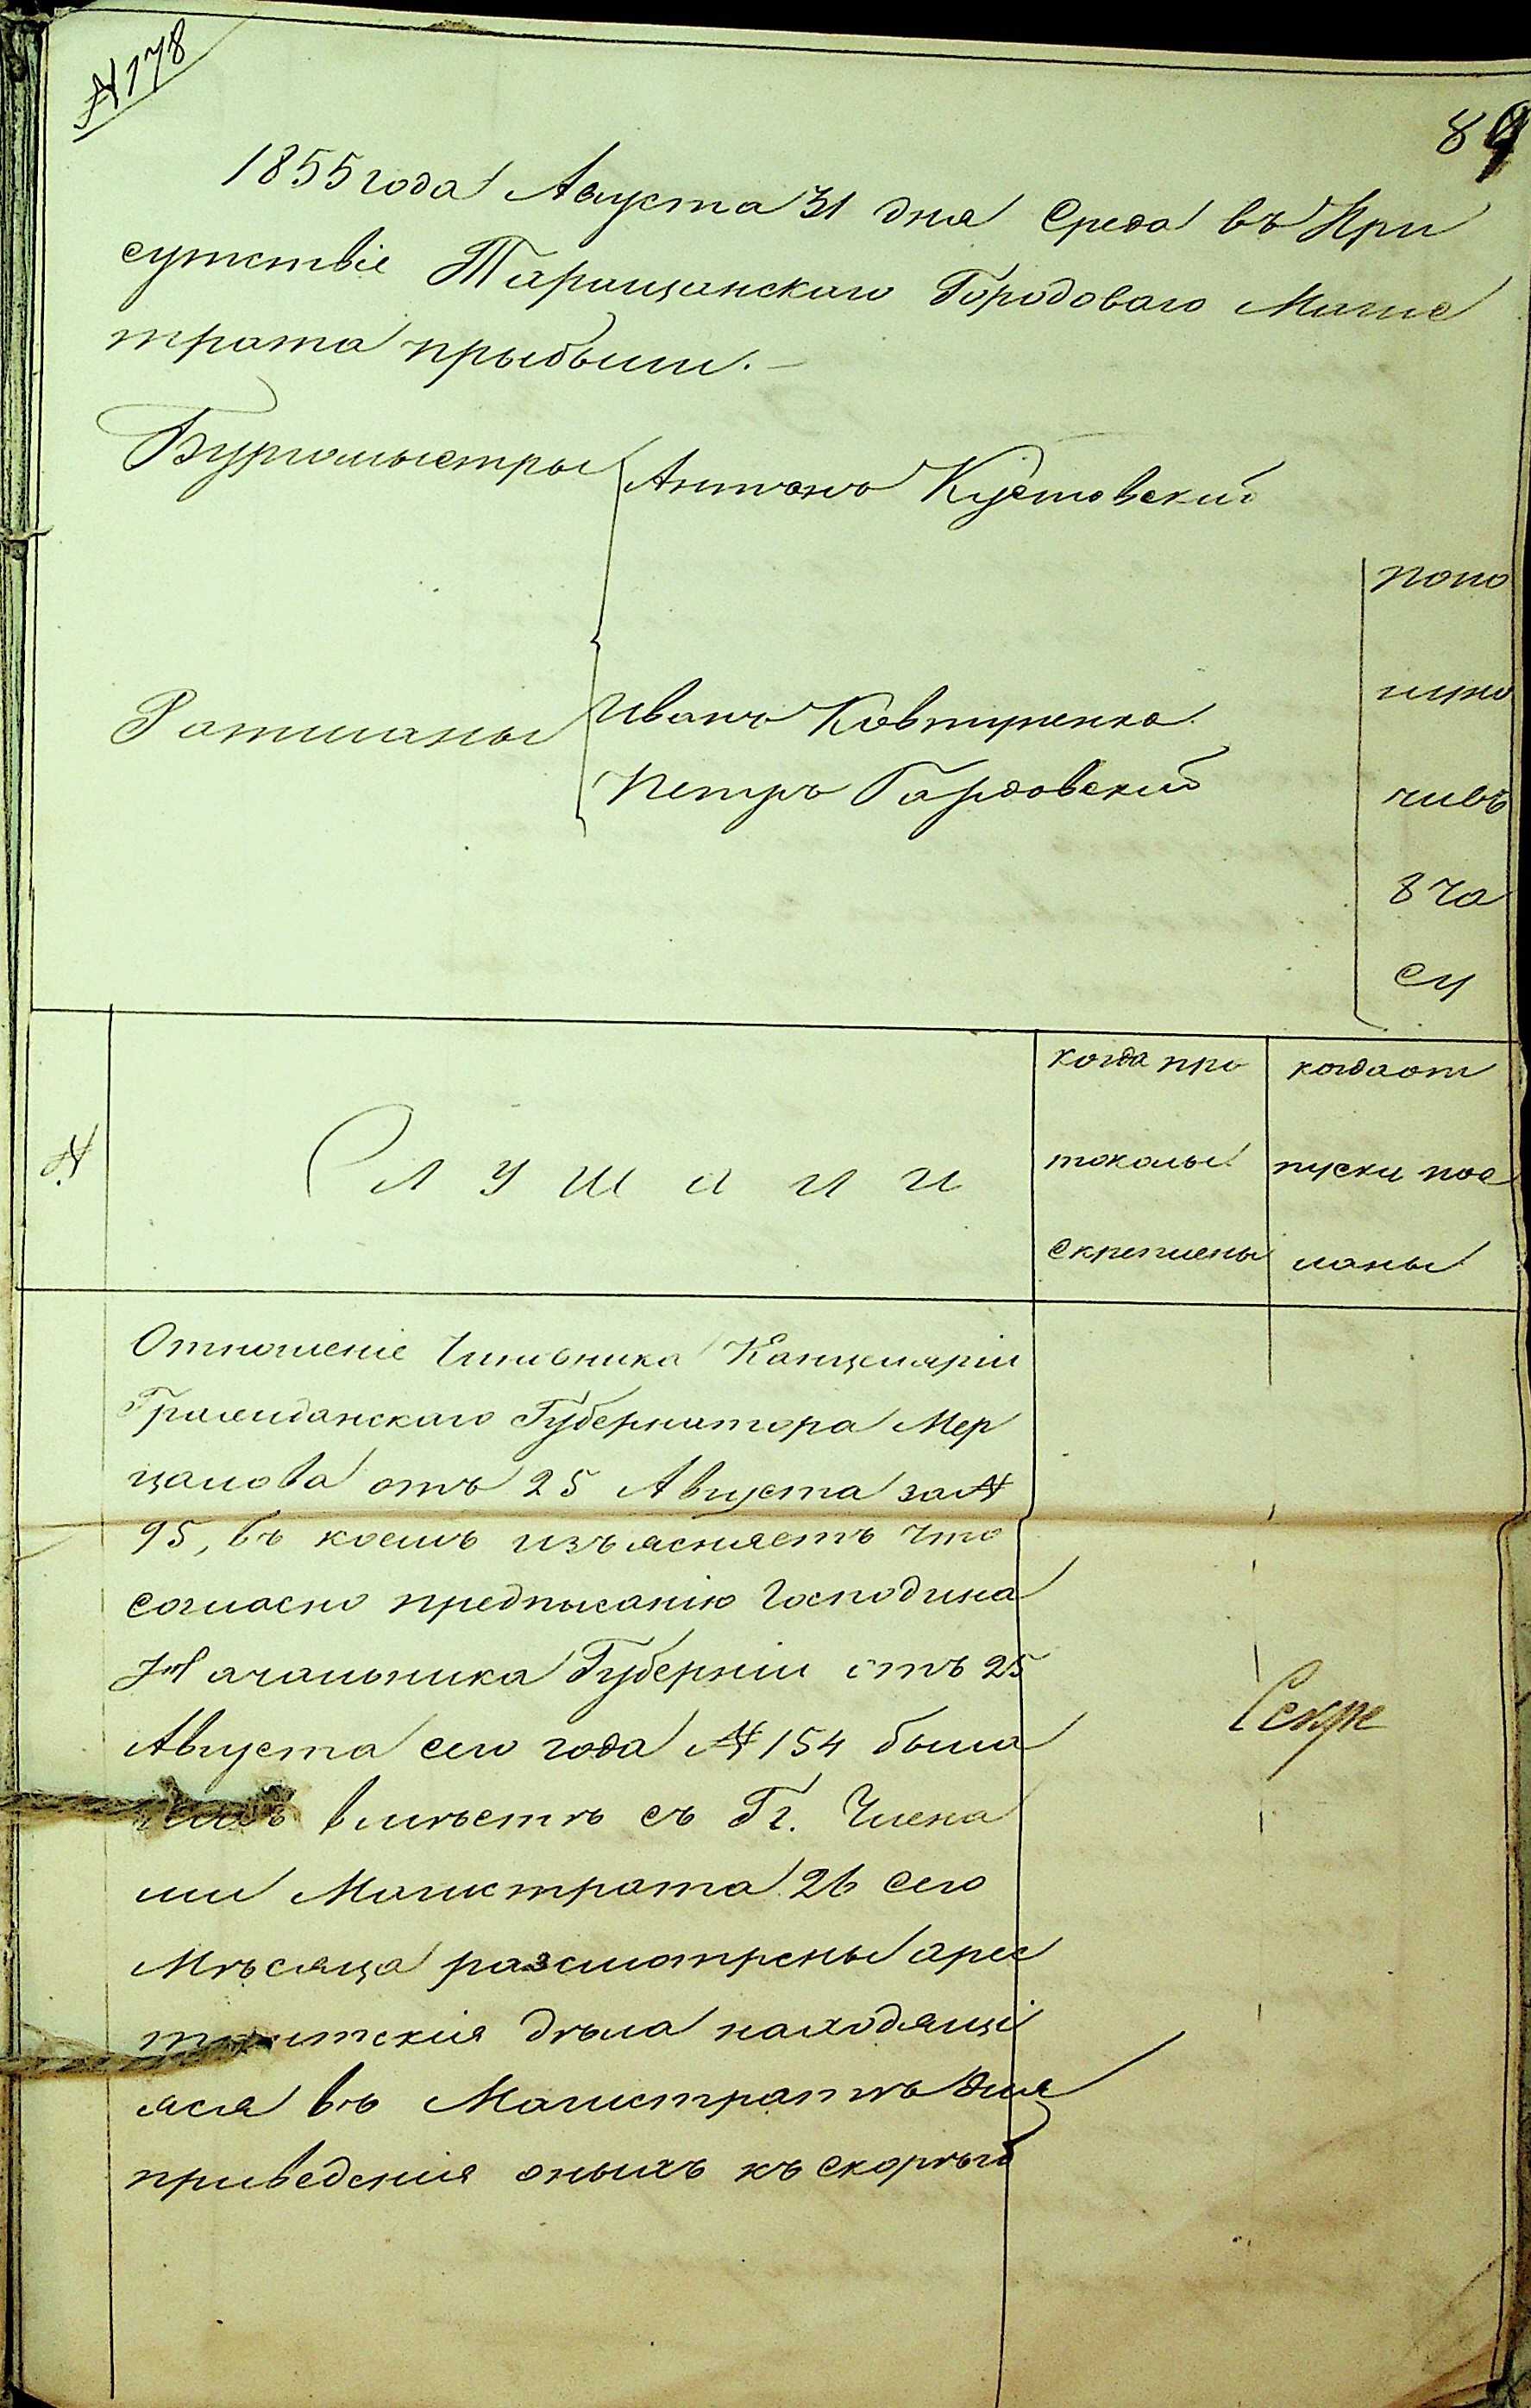 № 178
89
1855 года Августа 31 дня Среда въ При
сутствіе Таращанскаго Городоваго Магис
трата прыбыли. —
Бургомыстры Антонъ Кустовский
Ратманы Иванъ Ковтуненко
Петръ Гардовский
попо
лудно
чивъ
8 ча
су
№
Слушали
когда про
токолы
скреплены
когда от
пуски пос
ланы
Отношеніе Чиновника Канцеляріи
Гражданскаго Губернатора Мер
цалова отъ 25 Августа за №
95, въ коемъ изъясняетъ что
согласно предпысанію Господина
Начальника Губерніи отъ 25
Августа сего года № 154 была
имъ вместѣ съ Гг. Члена
ми Магистрата 26 сего
Мѣсяца разсмотрены арес
тантскія дѣла находящі
яся въ Магистратѣ для
приведенія оныхъ къ скорѣй
Секре